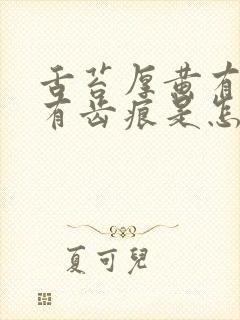 舌苔厚黄有
有齿痕是怎
夏可兒